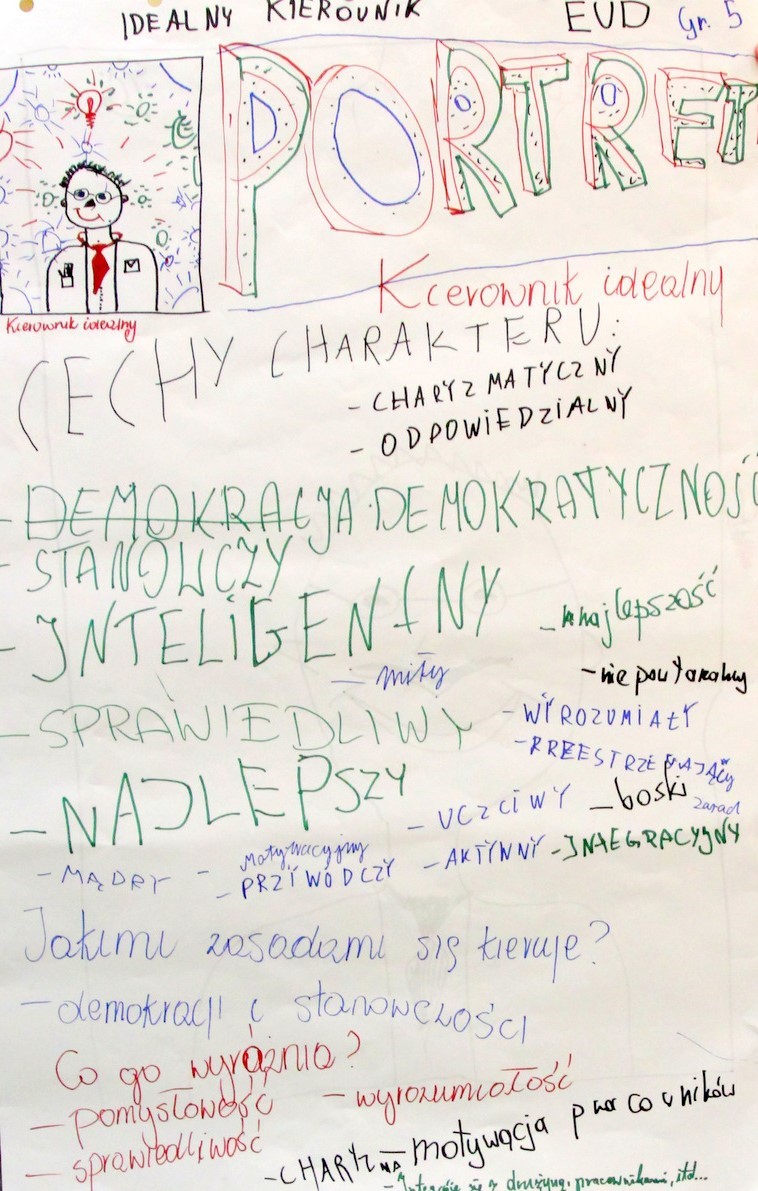 IDEALNY KIEROWNIK EUD Gr. 5
PORTRET
Kierownik idealny
Kierownik idealny
CECHY CHARAKTERU:
- CHARYZMATYCZNY
- ODPOWIEDZIALNY
- DEMOKRACJA DEMOKRATYCZNOŚĆ
- STANOWCZY
- INTELIGENTNY
- najlepszość
- miły
- niepowtarzalny
- SPRAWIEDLIWY
- WYROZUMIAŁY
- PRZESTRZEGAJĄCY
zasad
- NAJLEPSZY
- UCZCIWY
- boski
- MĄDRY
- Motywacyjny
- PRZYWÓDCZY
- AKTYWNY
- INTEGRACYJNY
Jakimi zasadami się kieruje?
- demokracji i stanowczości
Co go wyróżnia?
- pomysłowość
- wyrozumiałość
- sprawiedliwość
- motywacja pracowników
- CHARYZMA
- Integruje się z drużyną, pracownikami, itd...